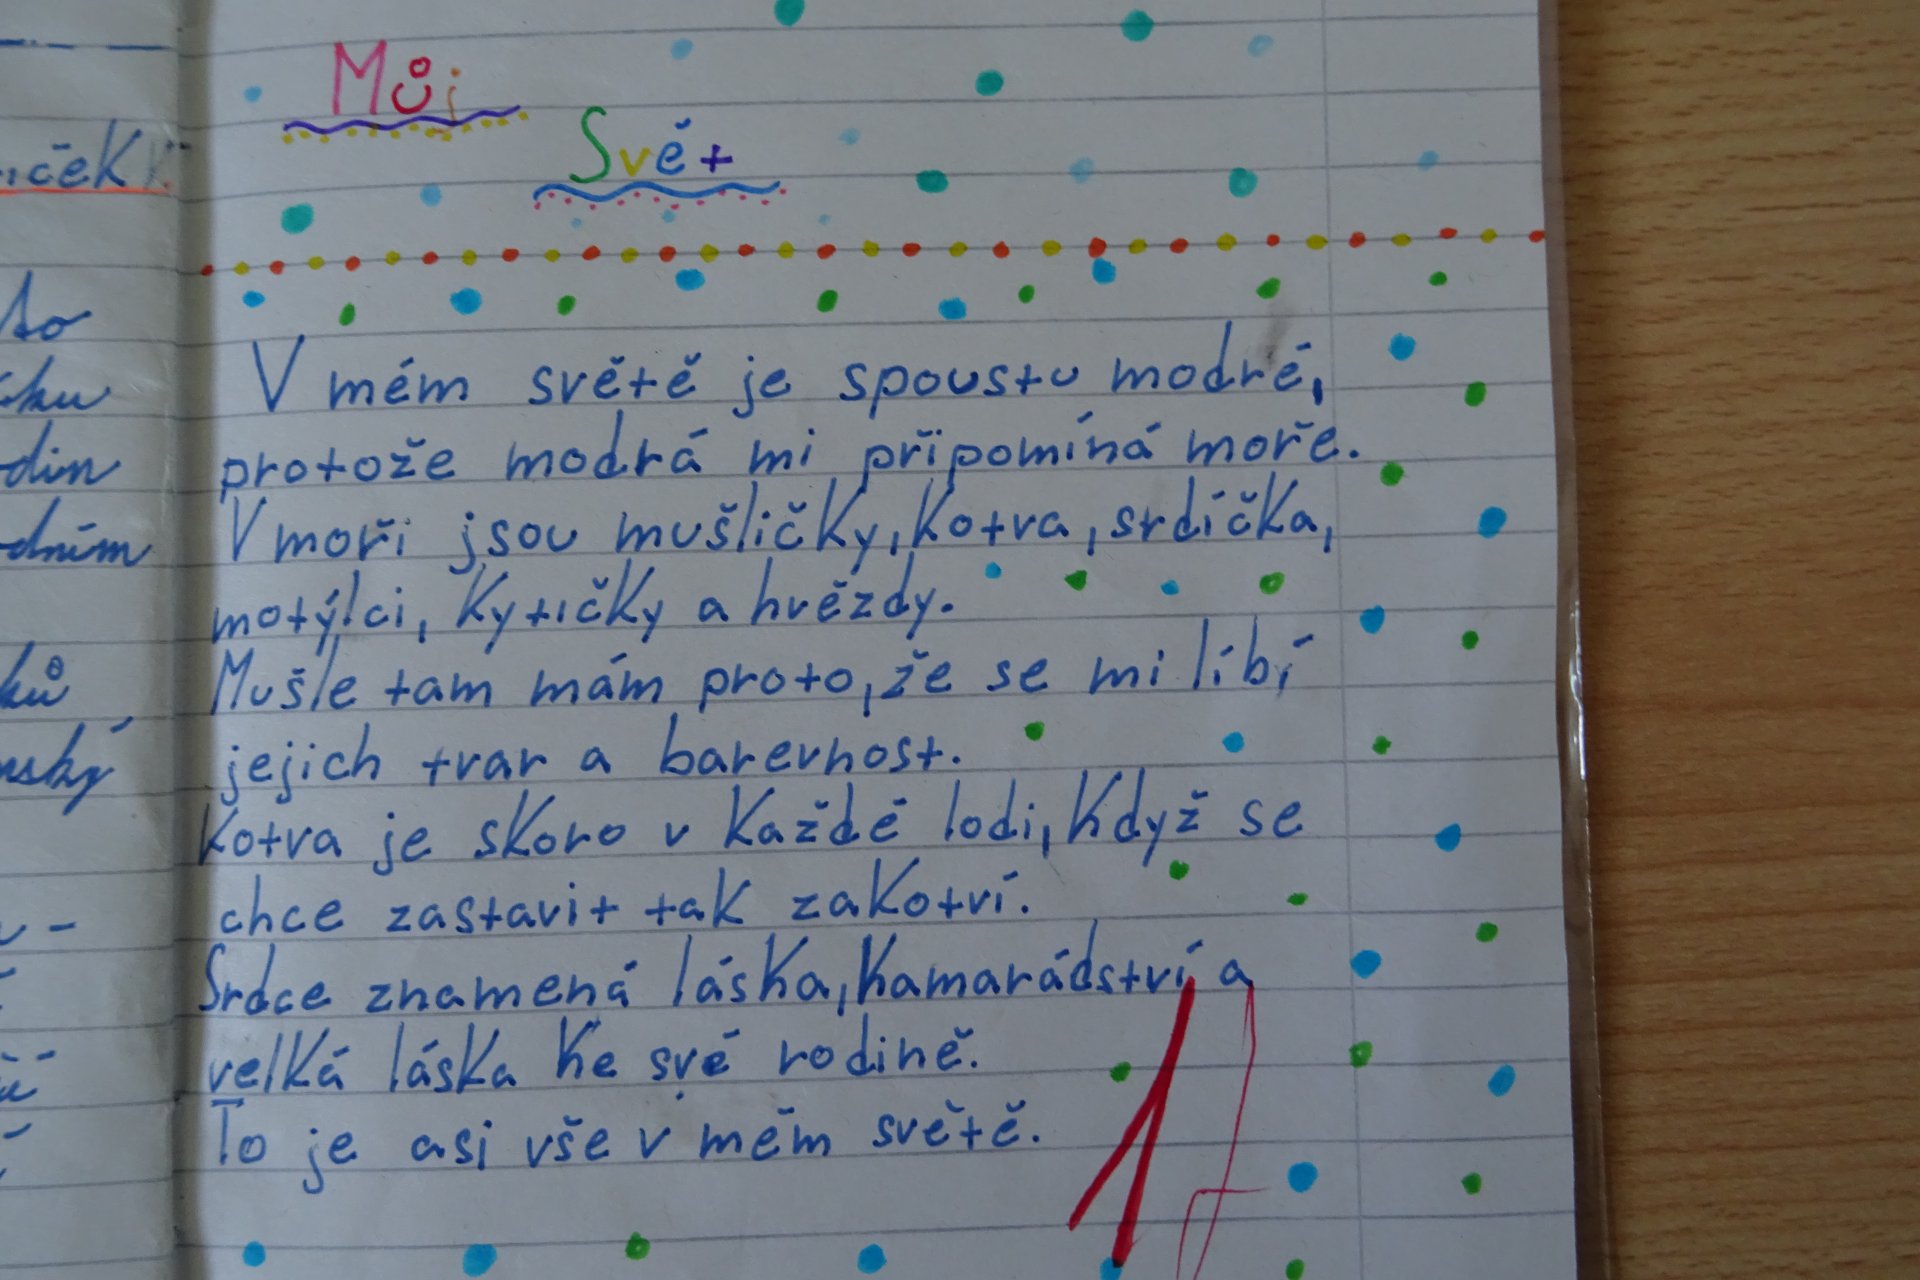 Můj
Svět
V mém světě je spoustu modré,
protože modrá mi připomíná moře.
V moři jsou mušličky, kotva, srdíčka,
motýlci, kytičky a hvězdy.
Mušle tam mám proto, že se mi líbí
jejich tvar a barevnost.
Kotva je skoro v každé lodi, když se
chce zastavit tak zakotví.
Srdce znamená láska, kamarádství a
velká láska ke své rodině.
To je asi vše v mém světě.
1